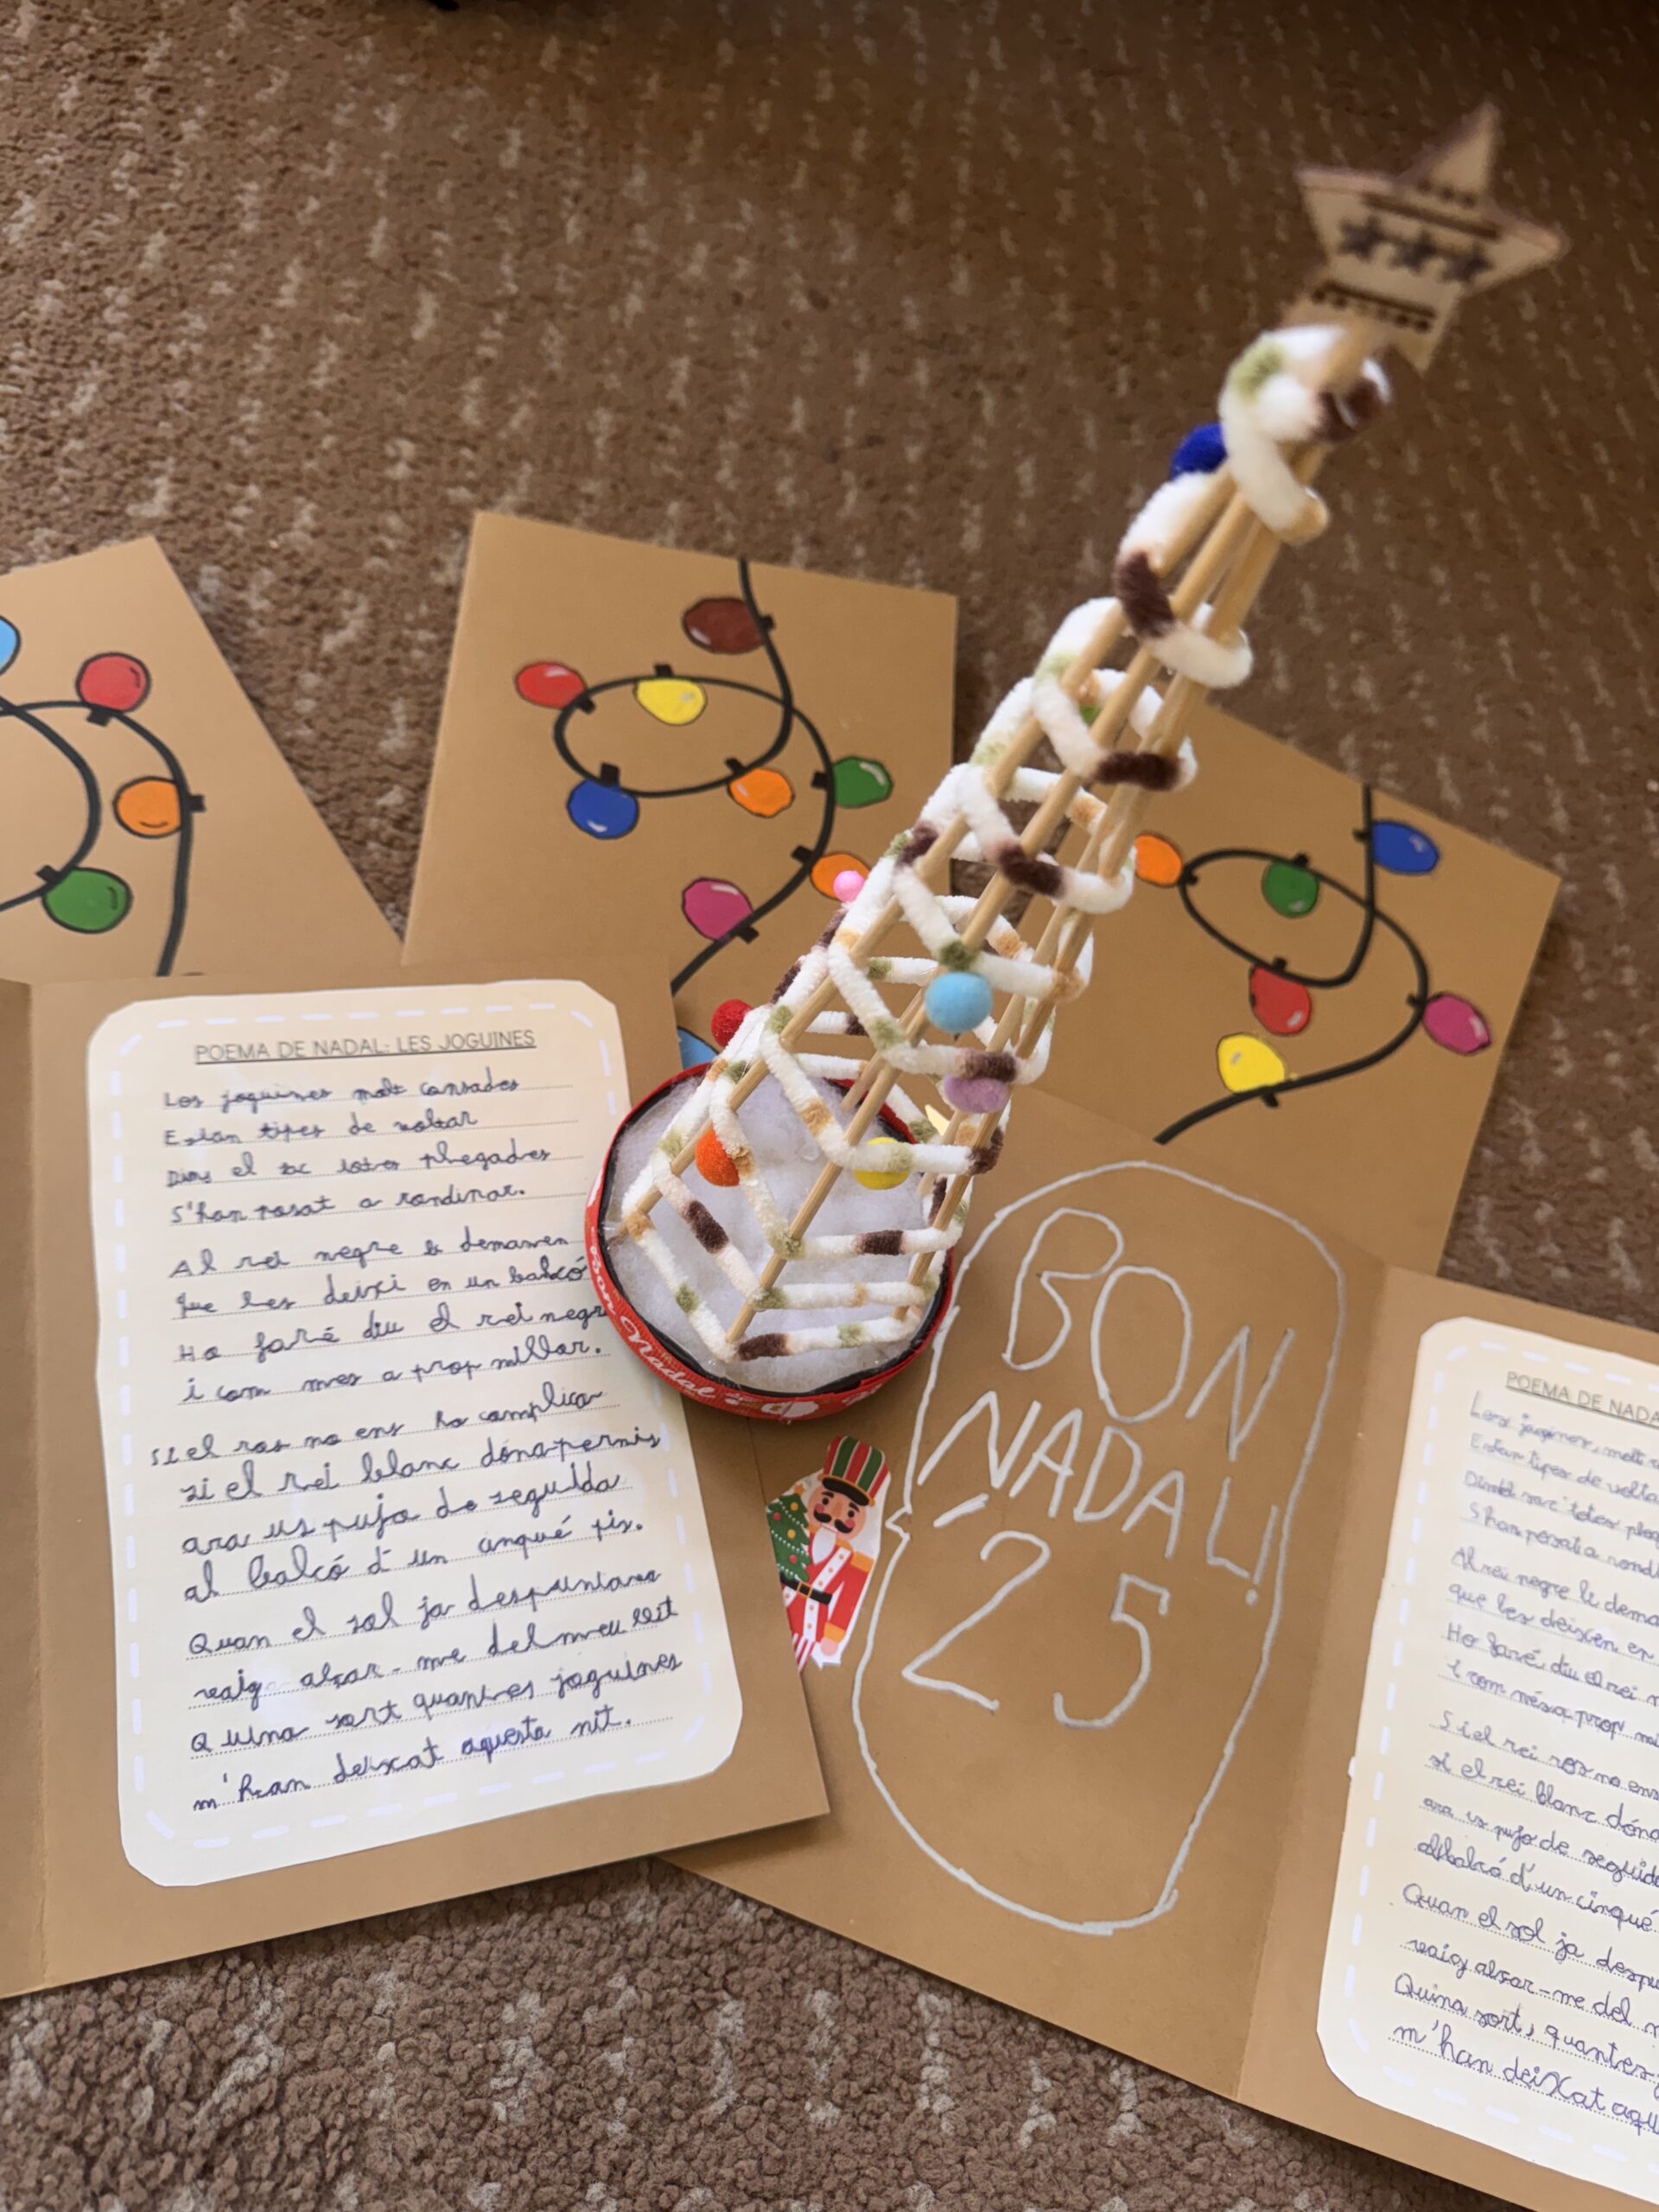 POEMA DE NADAL: LES JOGUINES
Les joguines molt cansades
Estan tipes de voltar
Dins el sac totes plegades
S'han posat a rondinar.
Al rei negre li demanen
Que les deixi en un balcó
Ho faré diu el rei negre
i com mes a prop millor.
Si el ros no ens ho complica
si el rei blanc dóna permis
ara us pujo de seguida
al balcó d'un cinqué pis.
Quan el sol ja despuntava
vaig alçar-me del meu llit
Quina sort quantes joguines
m'han deixat aquesta nit.
Bon Nadal
BON
NADAL!
25
POEMA DE NADA
Les joguines, molt
Estan tipes de volta
sac totes pleg
S'han posat a rond
Al rei negre li dema
que les deixen en
Ho faré, diu el rei n
i com més a prop mi
Si el rei ros no ens
si el rei blanc dóna
ara us pujo de seguida
al balcó d'un cinqué
Quan el sol ja despu
vaig alsar-me del m
Quina sort, quantes j
m'han deixat aqu